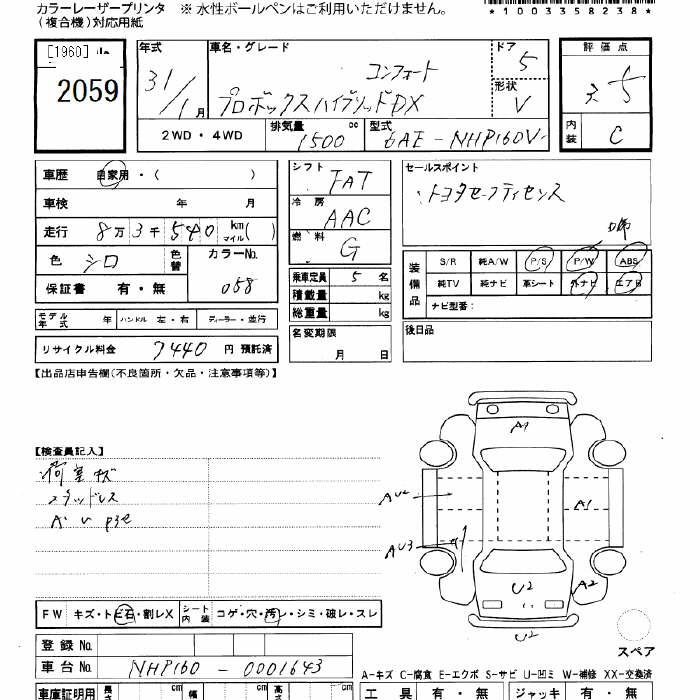 カラーレーザープリンタ ※ 水性ボールペンはご利用いただけません。
(複合機)対応用紙
*1003358238*
[1960]
2059
年式 31/1月
車名・グレード コンフォート
プロボックスハイブリッドDX
ドア 5
形状 V
評価点 3.5
内装 C
2WD・4WD
排気量 1500 cc
型式 6AE-NHP160V
車歴 自家用・( )
車検 年 月
走行 8万3千540 km マイル( )
色 シロ 色替
カラーNo. 058
保証書 有・無
シフト FAT
冷房 AAC
燃料 G
乗車定員 5 名
積載量 kg
総重量 kg
名変期限 月 日
セールスポイント
・トヨタセーフティセンス
装備品
S/R 純A/W P/S P/W ABS
純TV 純ナビ 革シート 外ナビ エアB
ナビ型番:
後日品
モデル年式 年 ハンドル 左・右 ディーラー・並行
リサイクル料金 7440 円 預託済
【出品店申告欄(不良箇所・欠品・注意事項等)】
【検査員記入】
荷室キズ
スタッドレス
A1
AU2
A1
AU3
A2
U2
U2
スペア
FW キズ・トビ石・割レX シート内装 コゲ・穴・汚レ・シミ・破レ・スレ
登録No.
車台No. NHP160-0001643
A-キズ C-腐食 E-エクボ S-サビ U-凹ミ W-補修 XX-交換済
車庫証明用 長さ cm 幅 cm 高さ cm
工具 有・無 ジャッキ 有・無